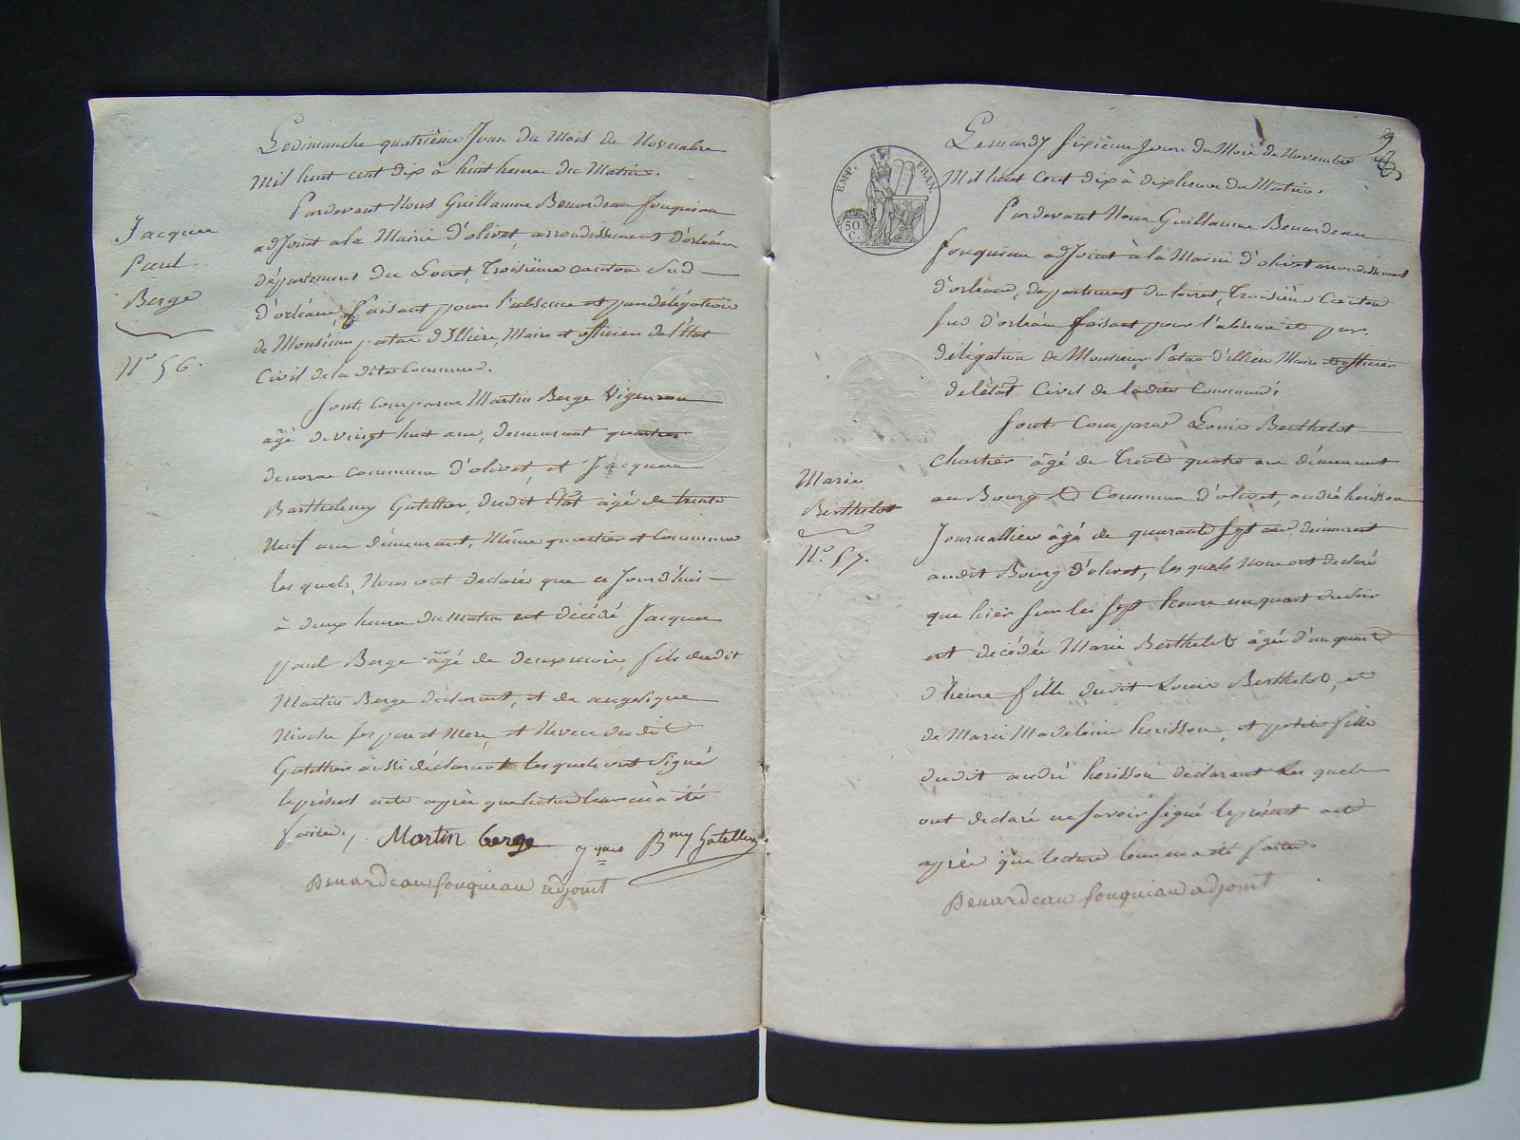 Jacques
Paul
Berge
N.º 56.
Le dimanche quatrième Jour du Mois de Novembre
Mil huit cent dix à huit heures du Matin.
Pardevant Nous Guillaume Benardeau fouqueau
adjoint a la Mairie d'olivet, arrondissement d'orléans
département du Loiret, Troisième canton Sud
d'orléans, faisant pour l'absence et par délégation
de Monsieur patas d'Illiers, Maire et officier de l'Etat
Civil de la dite Commune.
Sont Comparus Martin Berge Vigneron
âgé de vingt huit ans, demeurant quartier
commune d'olivet, et Jacques
Barthelemy Gatellier, dudit Etat âgé de trente
Neuf ans demeurant, Même quartier et Commune
les quels, Nous ont declarés que ce Jourd'hui
à deux heures du matin est décédé Jacques
paul Berge âgé de deux mois, fils dudit
Martin Berge déclarant, et de angelique
ses pere et Mere, et Neveu dudit
Gatellier aussi déclarant les quels ont Signé
le présent acte après que lecture leur en a été
faite.
Martin berge
J.ques B.my Gatellier
Benardeau fouqueau adjoint
EMP. FRAN.
50 C.
Marie
Berthelot
N.º 57.
Le mardy Sixième Jour du Mois de Novembre
Mil huit Cent Dix à Dix heures du Matin.
Pardevant Nous Guillaume Benardeau
fouqueau adjoint à la Mairie d'olivet arrondissement
d'orléans, département du loiret, Troisième Canton
sud d'orléans faisant pour l'absence et par
délégation de Monsieur Patas d'illiers Maire et officier
de l'état Civil de la dite Commune;
Sont Comparus Louis Berthelot
chartier âgé de Trente quatre ans demeurant
au Bourg et Commune d'olivet, andré herisson
Journallier âgé de quarante Sept ans demeurant
audit Bourg d'olivet, les quels Nous ont declaré
que hier sur les sept heures un quart du soir
est décédée Marie Berthelot âgée d'un quart
d'heure fille dudit Louis Berthelot, et
de Marie Madeleine herisson, et petite fille
dudit andré herisson déclarant Les quels
ont declaré ne savoir signé le présent acte
après que lecture leur en a été faite.
Benardeau fouqueau adjoint